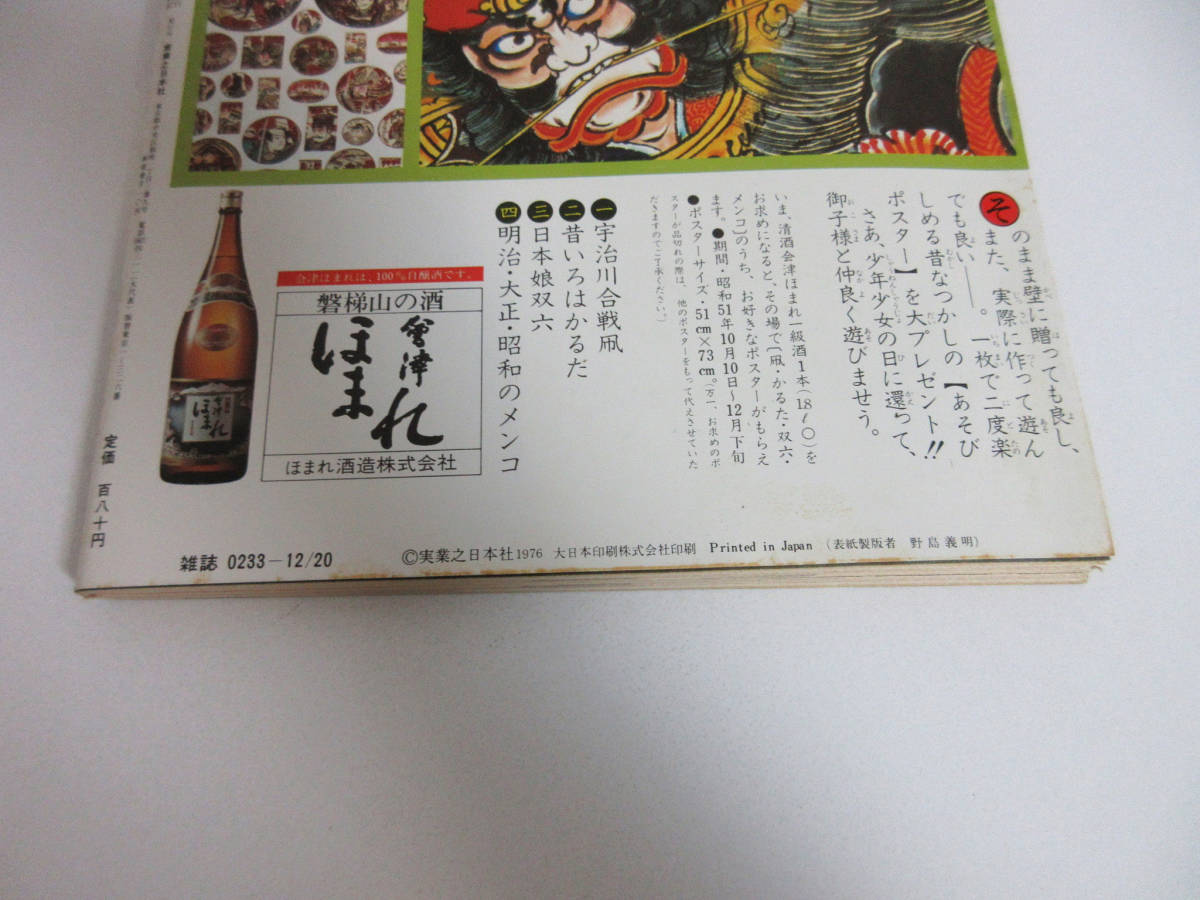 そのまま壁に贈っても良し、
また、実際に作って遊ん
でも良い――。一枚で二度楽
しめる昔なつかしの【あそび
ポスター】を大プレゼント!!
さあ、少年少女の日に還って、
御子様と仲良く遊びませう。
いま、清酒会津ほまれ一級酒1本(1.8ℓ)を
お求めになると、その場で〔凧・かるた・双六・
メンコ〕のうち、お好きなポスターがもらえ
ます。●期間・昭和51年10月10日〜12月下旬
●ポスターサイズ・51cm×73cm。(万一、お求めのポ
スターが品切れの際は、他のポスターをもって代えさせていた
だきますのでご了承ください。)
一宇治川合戦凧
二昔いろはかるだ
三日本娘双六
四明治・大正・昭和のメンコ
会津ほまれは、100%自醸酒です。
磐梯山の酒
會津
ほまれ
ほまれ酒造株式会社
會津
ほまれ
定価 百八十円
雑誌 0233-12/20
©実業之日本社1976 大日本印刷株式会社印刷 Printed in Japan (表紙製版者 野島義明)